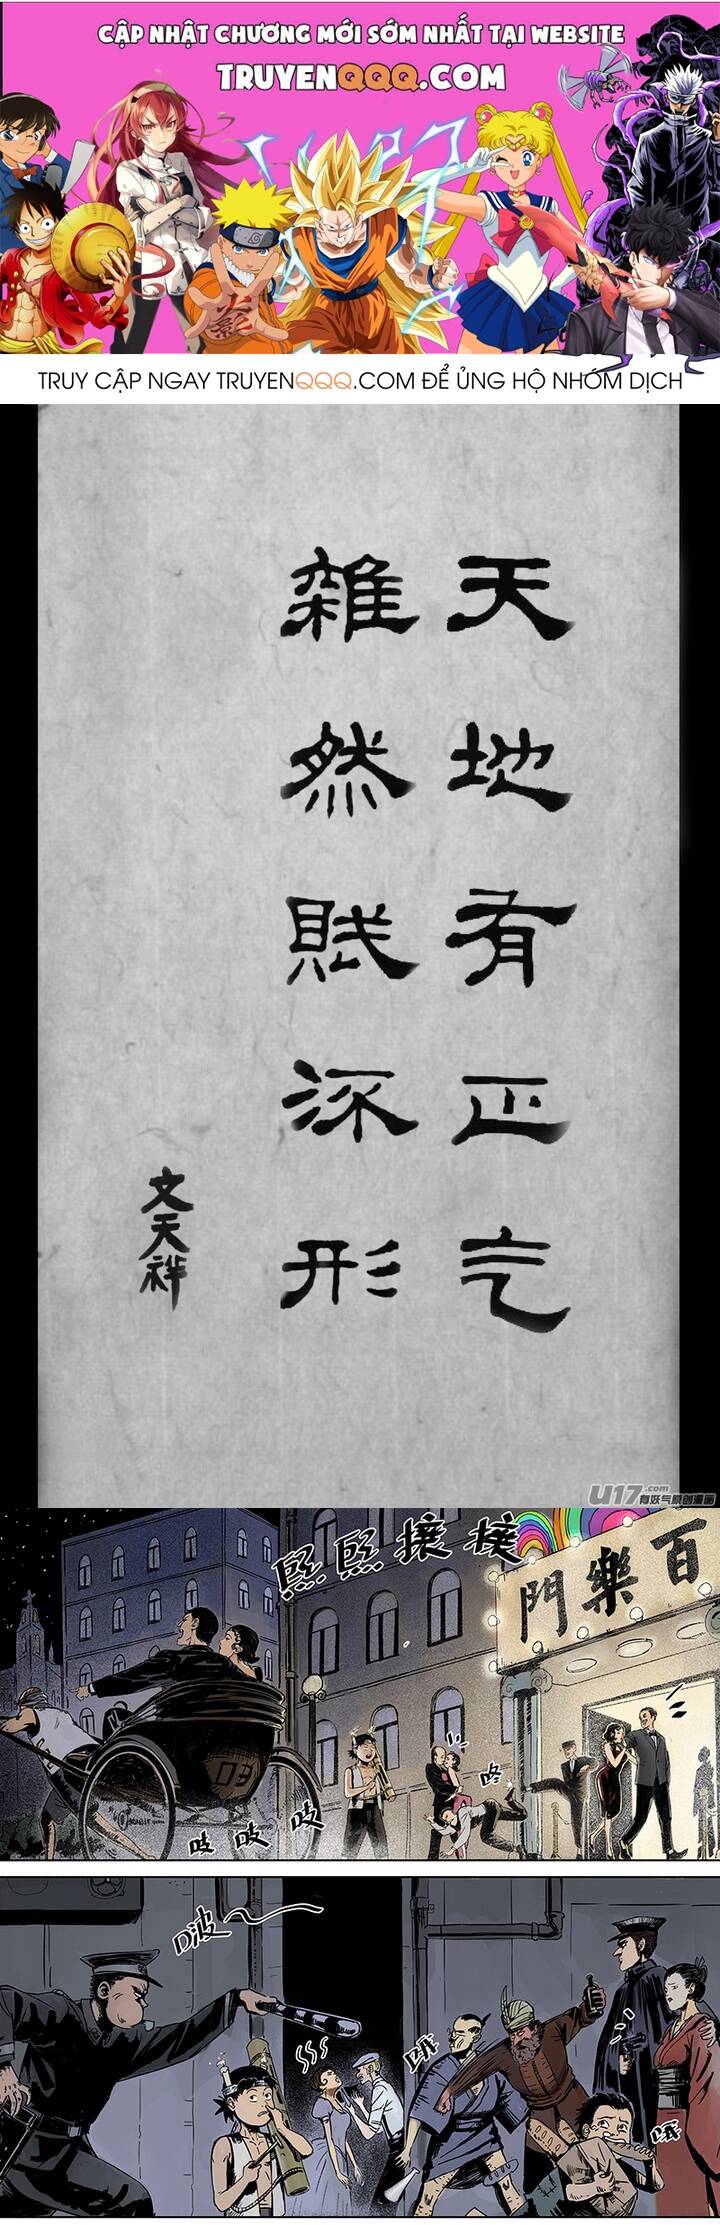 CẬP NHẬT CHƯƠNG MỚI SỚM NHẤT TẠI WEBSITE
TRUYENQQQ.COM
TRUY CẬP NGAY TRUYENQQQ.COM ĐỂ ỦNG HỘ NHÓM DỊCH
天地有正气
雜然賦流形
文天祥
U17.com
有妖气原创漫画
熙熙攘攘
百樂門
咚
吱 吱 吱
03